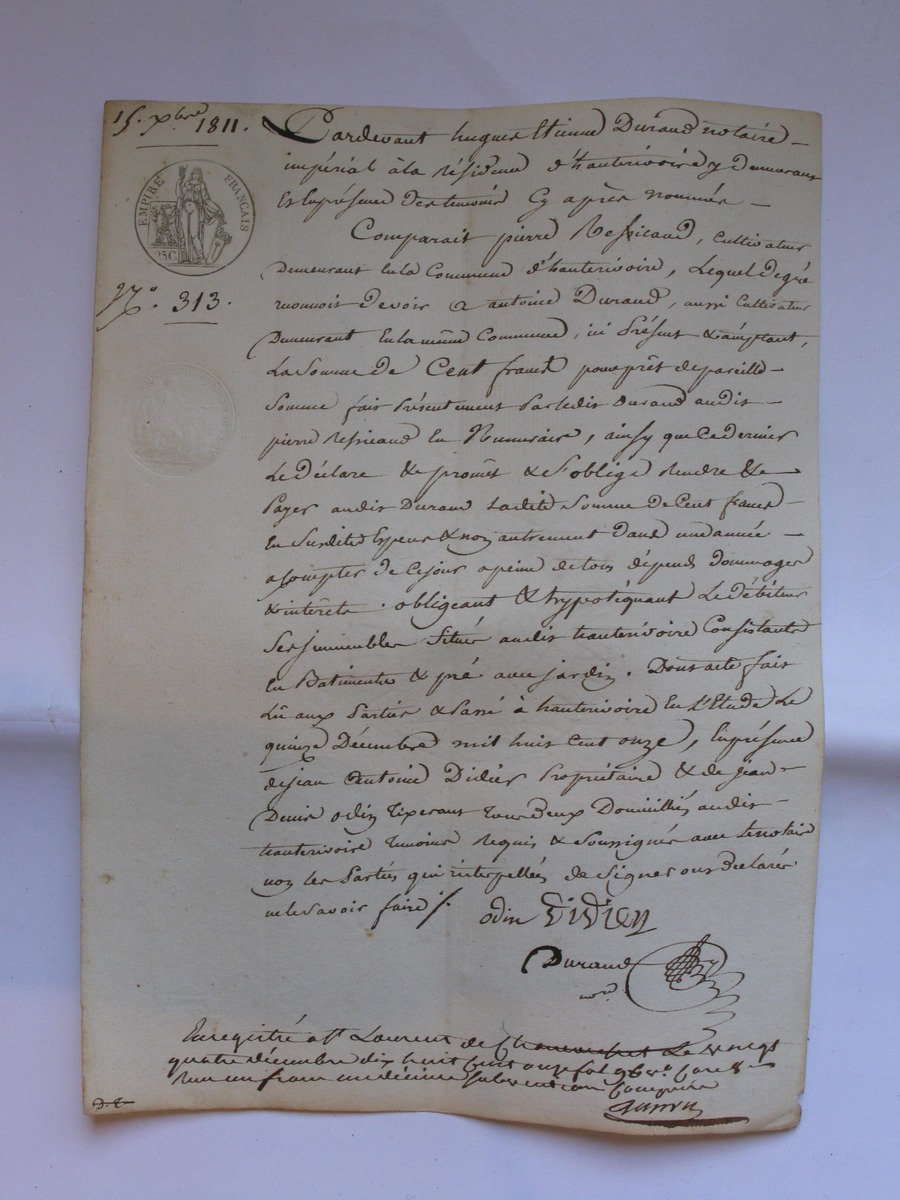 15. Xbre 1811.
EMPIRE FRANÇAIS
25C
N.º 313.
Pardevant hugues Etienne Durand notaire
impérial à la résidence d'hauterivoire y demeurant
Et En présence des temoins Cy après nommés
Comparait pierre Ressicaud, Cultivateur
Demeurant En la Commune d'hauterivoire, Lequel de gré
reconnoit devoir a antoine Durand, aussi Cultivateur
Demeurant En la même Commune, ici Présent & acceptant,
La Somme de Cent francs pour prêt de pareille
Somme fait Présentement Par ledit Durand audit
pierre Ressicaud En Numeraire, ainsy que Ce dernier
Le déclare & promêt & s'oblige Rendre &
Payer audit Durand Ladite Somme de Cent francs
En Susdites Especes & non autrement Dans une année
a Compter de Ce jour a peine de tous dépends Dommages
& intérêts. obligeant & hypotéquant Le débiteur
Ses immeubles Situés audit hauterivoire Consistants
En Batiments & pré avec jardin. Dont acte fait
Lû aux Parties & Passé à hauterivoire En L'Etude Le
quinze Décembre mil huit Cent onze, En présence
de jean antoine Didier Propriétaire & de jean
Denis odin Tixerant Tous deux Domiciliés audit
hauterivoire Temoins Requis & Soussignés avec le notaire
non les Parties qui interpellées de Signer ont Declarés
ne le Savoir faire /.
odin Didier
Durand
nore
Enregistré a St Laurent de Chamousset Le vingt
quatre décembre dix huit Cent onze fol 96 vo Case 8
Reçu un franc dix centimes Subvention Comprise
D. T.